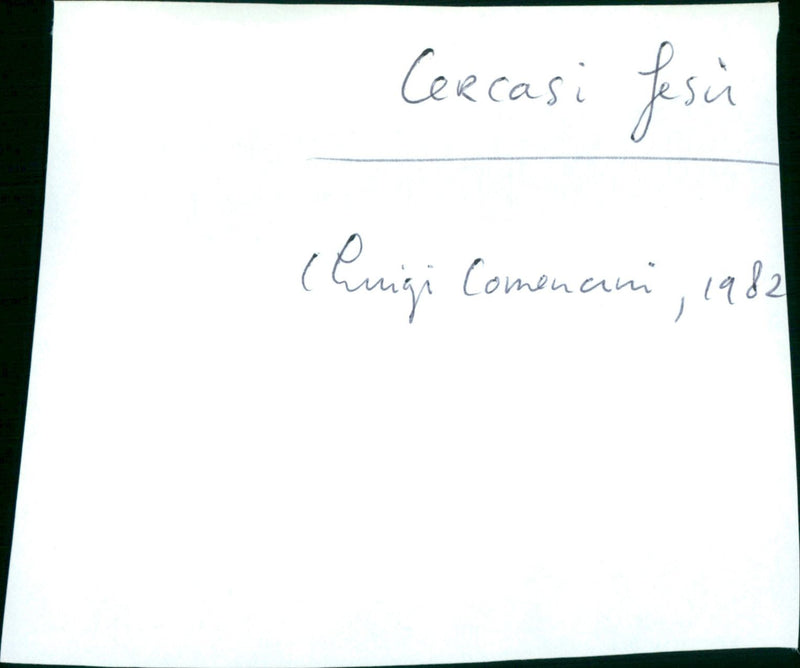 Cercasi Jesù
(Luigi Comencini, 1982